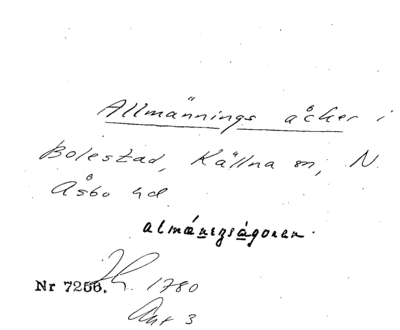 Allmännings åker i
Bolestad, Källna sn, N.
Åsbo hd.
almáneŋságoren.
Nr 7266. Jh. 1780
Akt 3